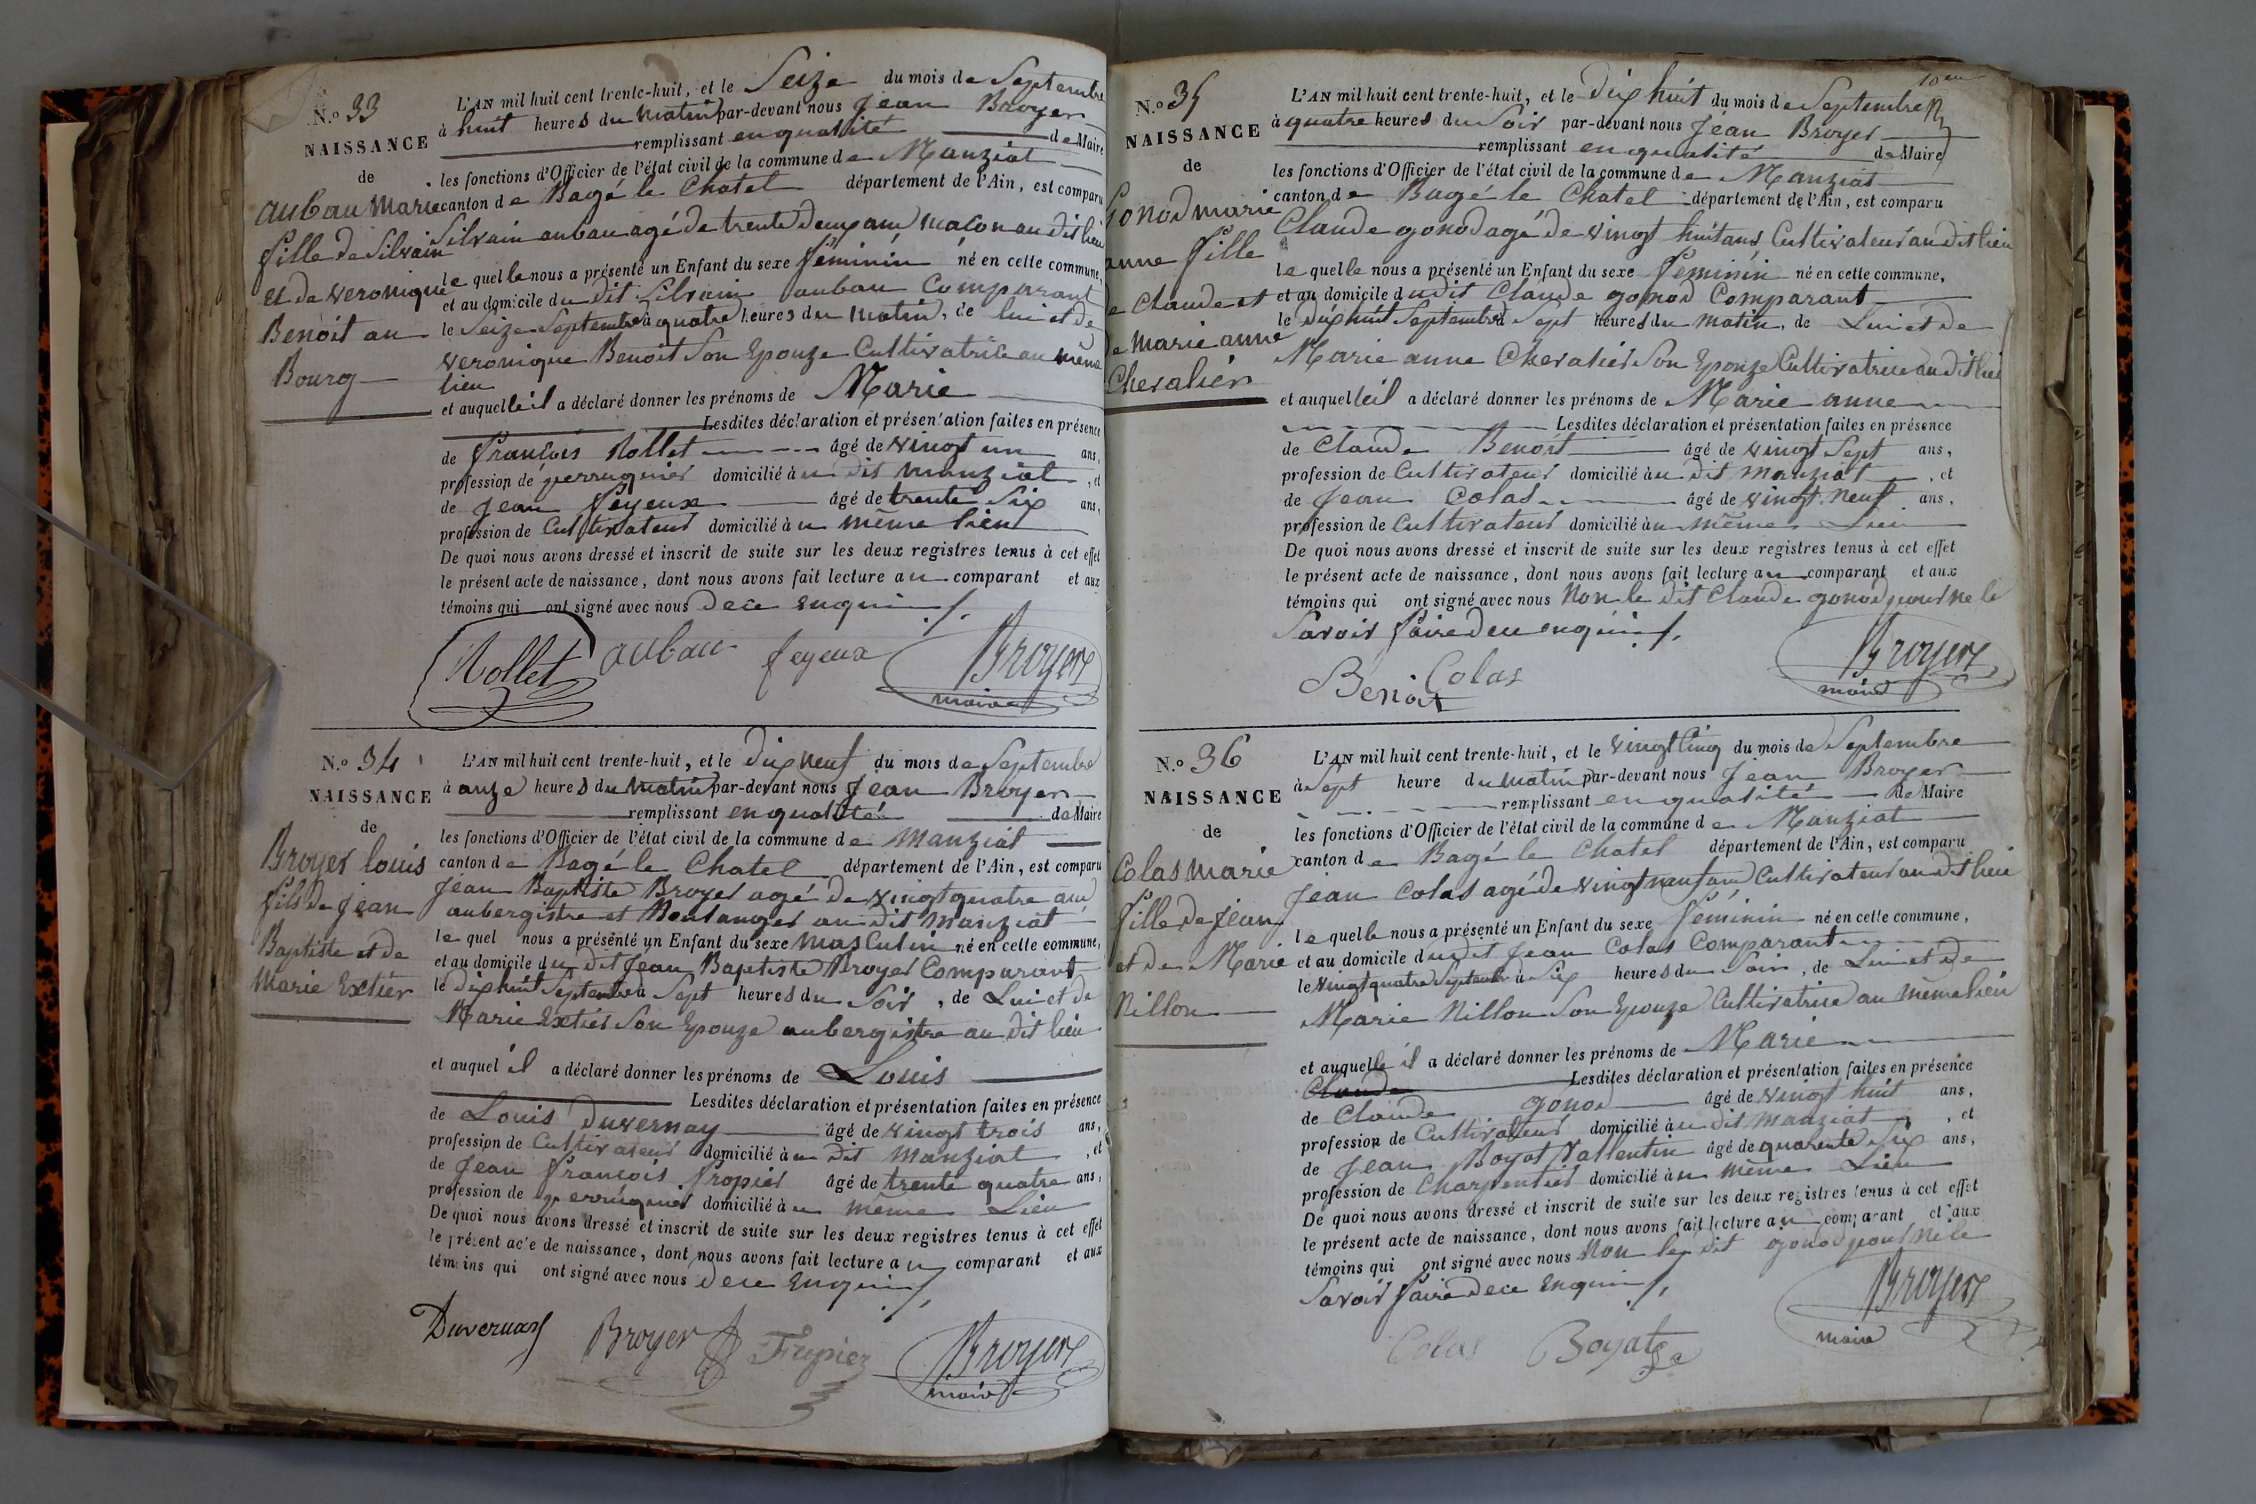 N.º 33
NAISSANCE
de
aubau Marie
fille de Silvain
et de veronique
Benoit au
Bourg
L'AN mil huit cent trente-huit, et le Seize du mois de Septembre
à huit heures du matin par-devant nous Jean Broyer
remplissant en qualité de Maire
les fonctions d'Officier de l'état civil de la commune de Manziat
canton de Bagé le Chatel département de l'Ain, est comparu
Silvain aubau agé de trente deux ans macon au dit lieu
le quel le nous a présenté un Enfant du sexe féminin né en cette commune,
et au domicile du dit Silvain aubau Comparant
le Seize Septembre à quatre heures du matin, de lui et de
veronique Benoit Son Epouze Cultivatrice au même
lieu
et auquelle il a déclaré donner les prénoms de Marie
Lesdites déclaration et présentation faites en présence
de françois Rollet âgé de vingt un ans,
profession de perruquier domicilié au dit manziat, et
de Jean feyeux âgé de trente Six ans,
profession de Cultivateur domicilié au même lieu
De quoi nous avons dressé et inscrit de suite sur les deux registres tenus à cet effet
le présent acte de naissance, dont nous avons fait lecture au comparant et aux
témoins qui ont signé avec nous de ce enquis
Rollet aubau feyeux Broyer
maire
N.º 34
NAISSANCE
de
Broyer louis
fils de jean
Baptiste et de
Marie Extier
L'AN mil huit cent trente-huit, et le dix neuf du mois de Septembre
à onze heures du matin par-devant nous Jean Broyer
remplissant en qualité de Maire
les fonctions d'Officier de l'état civil de la commune de manziat
canton de Bagé le Chatel département de l'Ain, est comparu
Jean Baptiste Broyer agé de vingt quatre ans
aubergistre et Boulanger au dit manziat
le quel nous a présenté un Enfant du sexe masculin né en cette commune,
et au domicile du dit Jean Baptiste Broyer Comparant
le dix huit Septembre à Sept heures du Soir, de Lui et de
Marie Extier Son Epouze aubergistre au dit lieu
et auquel il a déclaré donner les prénoms de Louis
Lesdites déclaration et présentation faites en présence
de Louis Duvernay âgé de vingt trois ans,
profession de Cultivateur domicilié au dit manziat, et
de Jean françois fropier âgé de trente quatre ans,
profession de perruquier domicilié au même Lieu
De quoi nous avons dressé et inscrit de suite sur les deux registres tenus à cet effet
le présent acte de naissance, dont nous avons fait lecture au comparant et aux
témoins qui ont signé avec nous de ce Enquis
Duvernay Broyer Broyer
maire
10 eme
N.º 35
NAISSANCE
de
Gonod marie
anne fille
de Claude et
de Marie anne
Chevalier
L'AN mil huit cent trente-huit, et le dix huit du mois de Septembre
à quatre heures du Soir par-devant nous Jean Broyer
remplissant en qualité de Maire
les fonctions d'Officier de l'état civil de la commune de Manziat
canton de Bagé le Chatel département de l'Ain, est comparu
Claude gonod agé de vingt huit ans Cultivateur au dit lieu
le quel le nous a présenté un Enfant du sexe féminin né en cette commune,
et au domicile du dit Claude gonod Comparant
le dix huit Septembre à Sept heures du matin, de Lui et de
Marie anne Chevalier Son Epouze Cultivatrice au dit lieu
et auquelle il a déclaré donner les prénoms de Marie anne
Lesdites déclaration et présentation faites en présence
de Claude Benoit âgé de vingt Sept ans,
profession de Cultivateur domicilié au dit manziat, et
de Jean Colas âgé de vingt neuf ans,
profession de Cultivateur domicilié au même Lieu
De quoi nous avons dressé et inscrit de suite sur les deux registres tenus à cet effet
le présent acte de naissance, dont nous avons fait lecture au comparant et aux
témoins qui ont signé avec nous Non le dit Claude gonod pour ne le
Savoir faire de ce enquis
Benoit Colas Broyer
maire
N.º 36
NAISSANCE
de
Colas Marie
fille de Jean
et de Marie
Nillon
L'AN mil huit cent trente-huit, et le vingt Cinq du mois de Septembre
à Sept heure du matin par-devant nous Jean Broyer
remplissant en qualité de Maire
les fonctions d'Officier de l'état civil de la commune de Manziat
canton de Bagé le Chatel département de l'Ain, est comparu
Jean Colas agé de vingt neuf ans Cultivateur au dit lieu
le quel le nous a présenté un Enfant du sexe féminin né en cette commune,
et au domicile du dit Jean Colas Comparant
le vingt quatre Septembre à Six heures du Soir, de Lui et de
Marie Nillon Son Epouze Cultivatrice au même lieu
et auquelle il a déclaré donner les prénoms de Marie
Claude Lesdites déclaration et présentation faites en présence
de Claude gonod âgé de vingt huit ans,
profession de Cultivateur domicilié au dit manziat, et
de Jean Boyat Vallentin âgé de quarente Six ans,
profession de Charpentier domicilié au même Lieu
De quoi nous avons dressé et inscrit de suite sur les deux registres tenus à cet effet
le présent acte de naissance, dont nous avons fait lecture au comparant et aux
témoins qui ont signé avec nous Non le dit gonod pour ne le
Savoir faire de ce enquis
Colas Boyat Broyer
maire